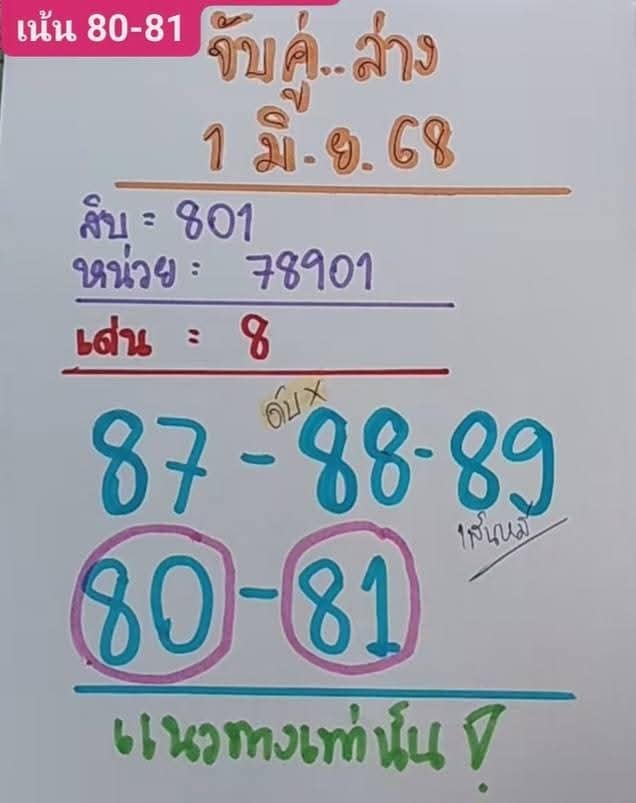 เน้น 80-81
จับคู่..ล่าง
1 มิ.ย. 68
สิบ = 801
หน่วย = 78901
เด่น = 8
ดับ X
87 - 88 - 89
เส้นหมี่
80 - 81
แนวทางเท่านั้น